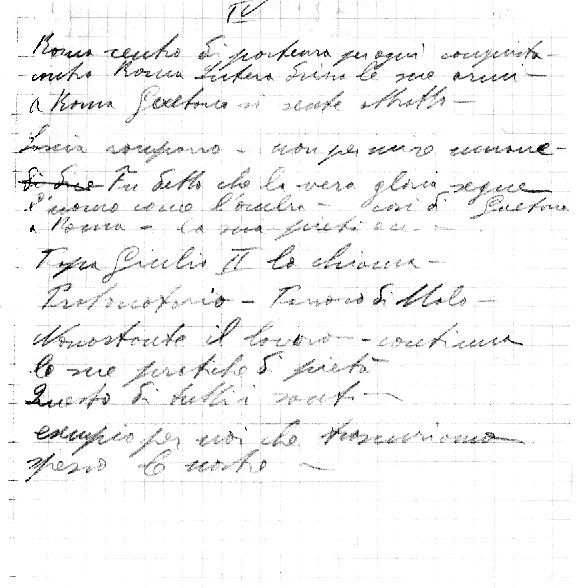 IV
Roma centro di partenza per ogni conquista -
contro Roma Lutero drizza le sue armi -
a Roma Gaetano si sente attratto -
Lascia - non per
Fu detto che la vera gloria segue
l'uomo come l'ombra - così di Gaetano
a Roma - la sua pietà
Papa Giulio II lo chiama -
Protonotario - Parroco di Malo -
Nonostante il lavoro - continua
le sue pratiche di pietà
Questo di tutti i santi -
esempio per noi che trascuriamo
spesso le nostre -